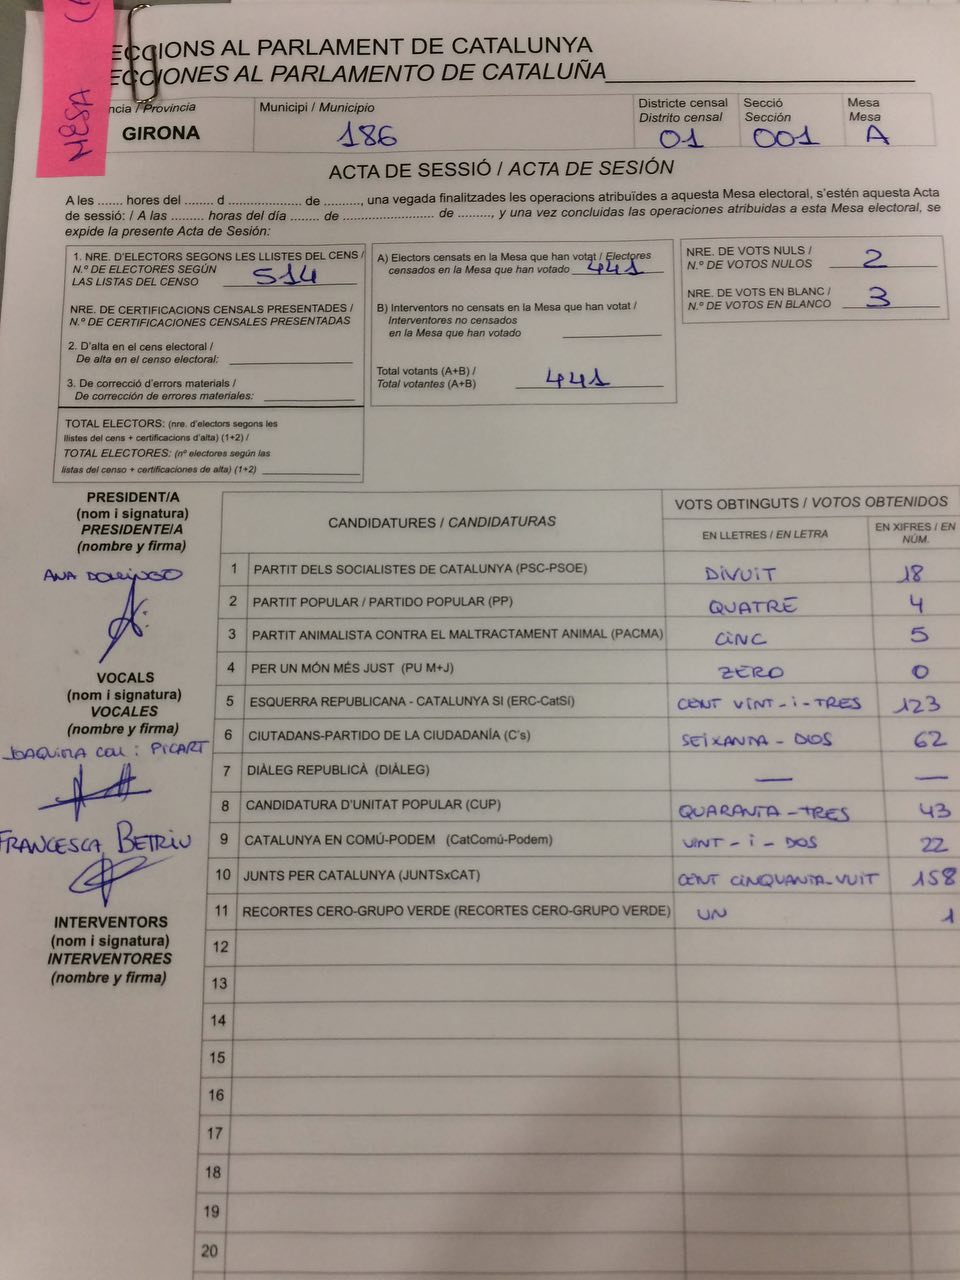 MESA
ECCIONS AL PARLAMENT DE CATALUNYA
ECCIONES AL PARLAMENTO DE CATALUÑA
ncia / Provincia
GIRONA
Municipi / Municipio
186
Districte censal
Distrito censal
01
Secció
Sección
001
Mesa
Mesa
A
ACTA DE SESSIÓ / ACTA DE SESIÓN
A les ....... hores del ........ d .................... de .........., una vegada finalitzades les operacions atribuïdes a aquesta Mesa electoral, s'estén aquesta Acta
de sessió: / A las ......... horas del día ........ de ......................... de ........., y una vez concluidas las operaciones atribuidas a esta Mesa electoral, se
expide la presente Acta de Sesión:
1. NRE. D'ELECTORS SEGONS LES LLISTES DEL CENS /
N.º DE ELECTORES SEGÚN
LAS LISTAS DEL CENSO 514
NRE. DE CERTIFICACIONS CENSALS PRESENTADES /
N.º DE CERTIFICACIONES CENSALES PRESENTADAS
2. D'alta en el cens electoral /
De alta en el censo electoral:
3. De correcció d'errors materials /
De corrección de errores materiales:
TOTAL ELECTORS: (nre. d'electors segons les
llistes del cens + certificacions d'alta) (1+2) /
TOTAL ELECTORES: (nº electores según las
listas del censo + certificaciones de alta) (1+2)
A) Electors censats en la Mesa que han votat / Electores
censados en la Mesa que han votado 441
B) Interventors no censats en la Mesa que han votat /
Interventores no censados
en la Mesa que han votado
Total votants (A+B) /
Total votantes (A+B) 441
NRE. DE VOTS NULS /
N.º DE VOTOS NULOS 2
NRE. DE VOTS EN BLANC /
N.º DE VOTOS EN BLANCO 3
PRESIDENT/A
(nom i signatura)
PRESIDENTE/A
(nombre y firma)
ANA DOMINGO
VOCALS
(nom i signatura)
VOCALES
(nombre y firma)
JOAQUIMA COLL i PICART
FRANCESCA BETRIU
INTERVENTORS
(nom i signatura)
INTERVENTORES
(nombre y firma)
CANDIDATURES / CANDIDATURAS
VOTS OBTINGUTS / VOTOS OBTENIDOS
EN LLETRES / EN LETRA
EN XIFRES / EN
NÚM.
1 PARTIT DELS SOCIALISTES DE CATALUNYA (PSC-PSOE) DIVUIT 18
2 PARTIT POPULAR / PARTIDO POPULAR (PP) QUATRE 4
3 PARTIT ANIMALISTA CONTRA EL MALTRACTAMENT ANIMAL (PACMA) CINC 5
4 PER UN MÓN MÉS JUST (PU M+J) ZERO 0
5 ESQUERRA REPUBLICANA - CATALUNYA SI (ERC-CatSí) CENT VINT-i-TRES 123
6 CIUTADANS-PARTIDO DE LA CIUDADANÍA (C's) SEIXANTA - DOS 62
7 DIÀLEG REPUBLICÀ (DIÀLEG) — —
8 CANDIDATURA D'UNITAT POPULAR (CUP) QUARANTA-TRES 43
9 CATALUNYA EN COMÚ-PODEM (CatComú-Podem) VINT-i-DOS 22
10 JUNTS PER CATALUNYA (JUNTSxCAT) CENT CINQUANTA-VUIT 158
11 RECORTES CERO-GRUPO VERDE (RECORTES CERO-GRUPO VERDE) UN 1
12
13
14
15
16
17
18
19
20